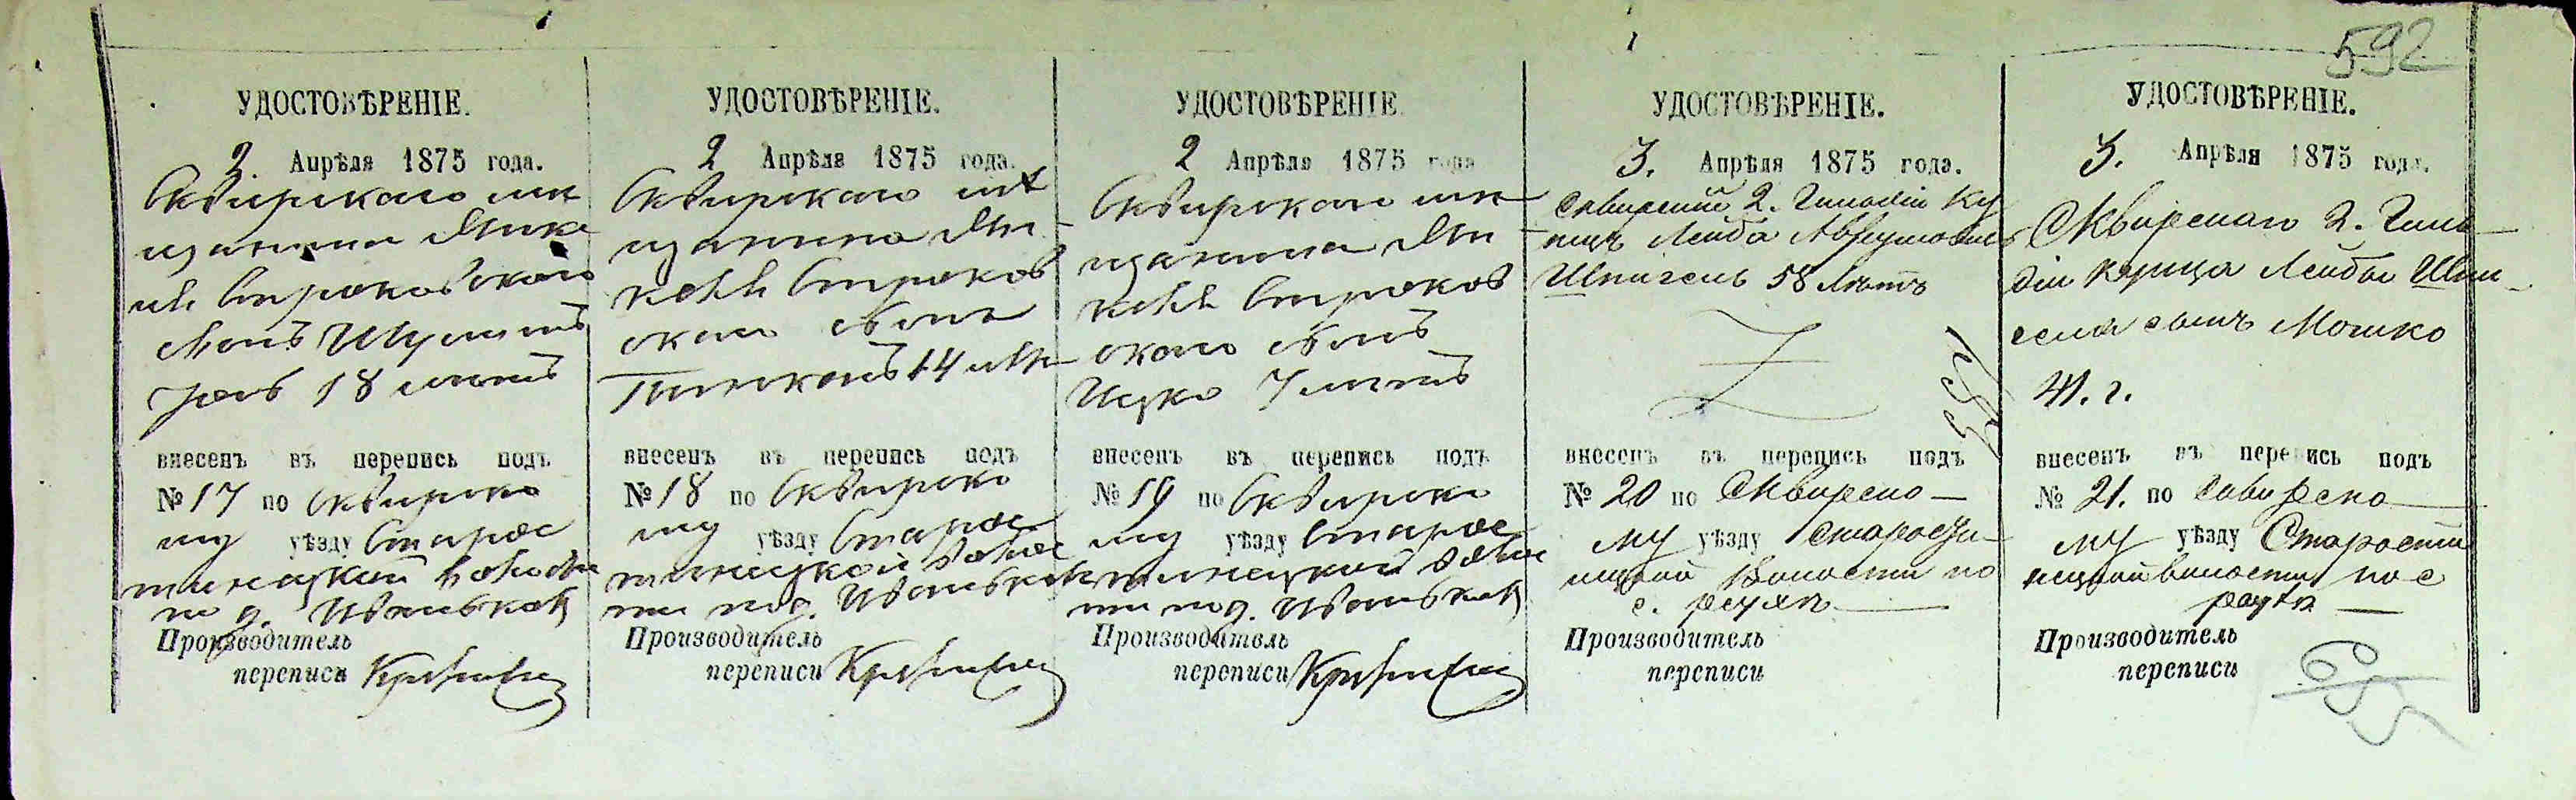 592
УДОСТОВѢРЕНІЕ.
2. Апрѣля 1875 года.
Сквирского мѣ
щанина
Строковского
сынъ Шулимъ
18 лѣтъ
внесенъ въ перепись подъ
№ 17 по Сквирско
му уѣзду Старос
тинецкой волости
по д. Иваньков
Производитель
переписи
УДОСТОВѢРЕНІЕ.
2 Апрѣля 1875 года.
Сквирского мѣ
щанина
Строков
ского сына
14 лѣ
внесенъ въ перепись подъ
№ 18 по Сквирско
му уѣзду Старос
тинецкой волос
ти по д. Иваньков
Производитель
переписи
УДОСТОВѢРЕНІЕ.
2 Апрѣля 1875 года
Сквирского мѣ
щанина
Строков
ского сынъ
Ицко 7 лѣтъ
внесенъ въ перепись подъ
№ 19 по Сквирско
му уѣзду Старос
тинецкой волос
ти по д. Иваньков
Производитель
переписи
УДОСТОВѢРЕНІЕ.
3. Апрѣля 1875 года.
Сквирский 2. Гильдіи Ку
пецъ Лейба Аврумовичъ
Шпигель 58 лѣтъ
внесенъ въ перепись подъ
№ 20 по Сквирско—
му уѣзду Старости
нецкой волости по
с.
Производитель
переписи
УДОСТОВѢРЕНІЕ.
3. Апрѣля 1875 года.
Сквирскаго 2. Гиль—
діи Купца Лейбы Шпи
геля сынъ Мошко
41. г.
внесенъ въ перепись подъ
№ 21. по Сквирско
му уѣзду Старости
нецкой волости по с
Производитель
переписи